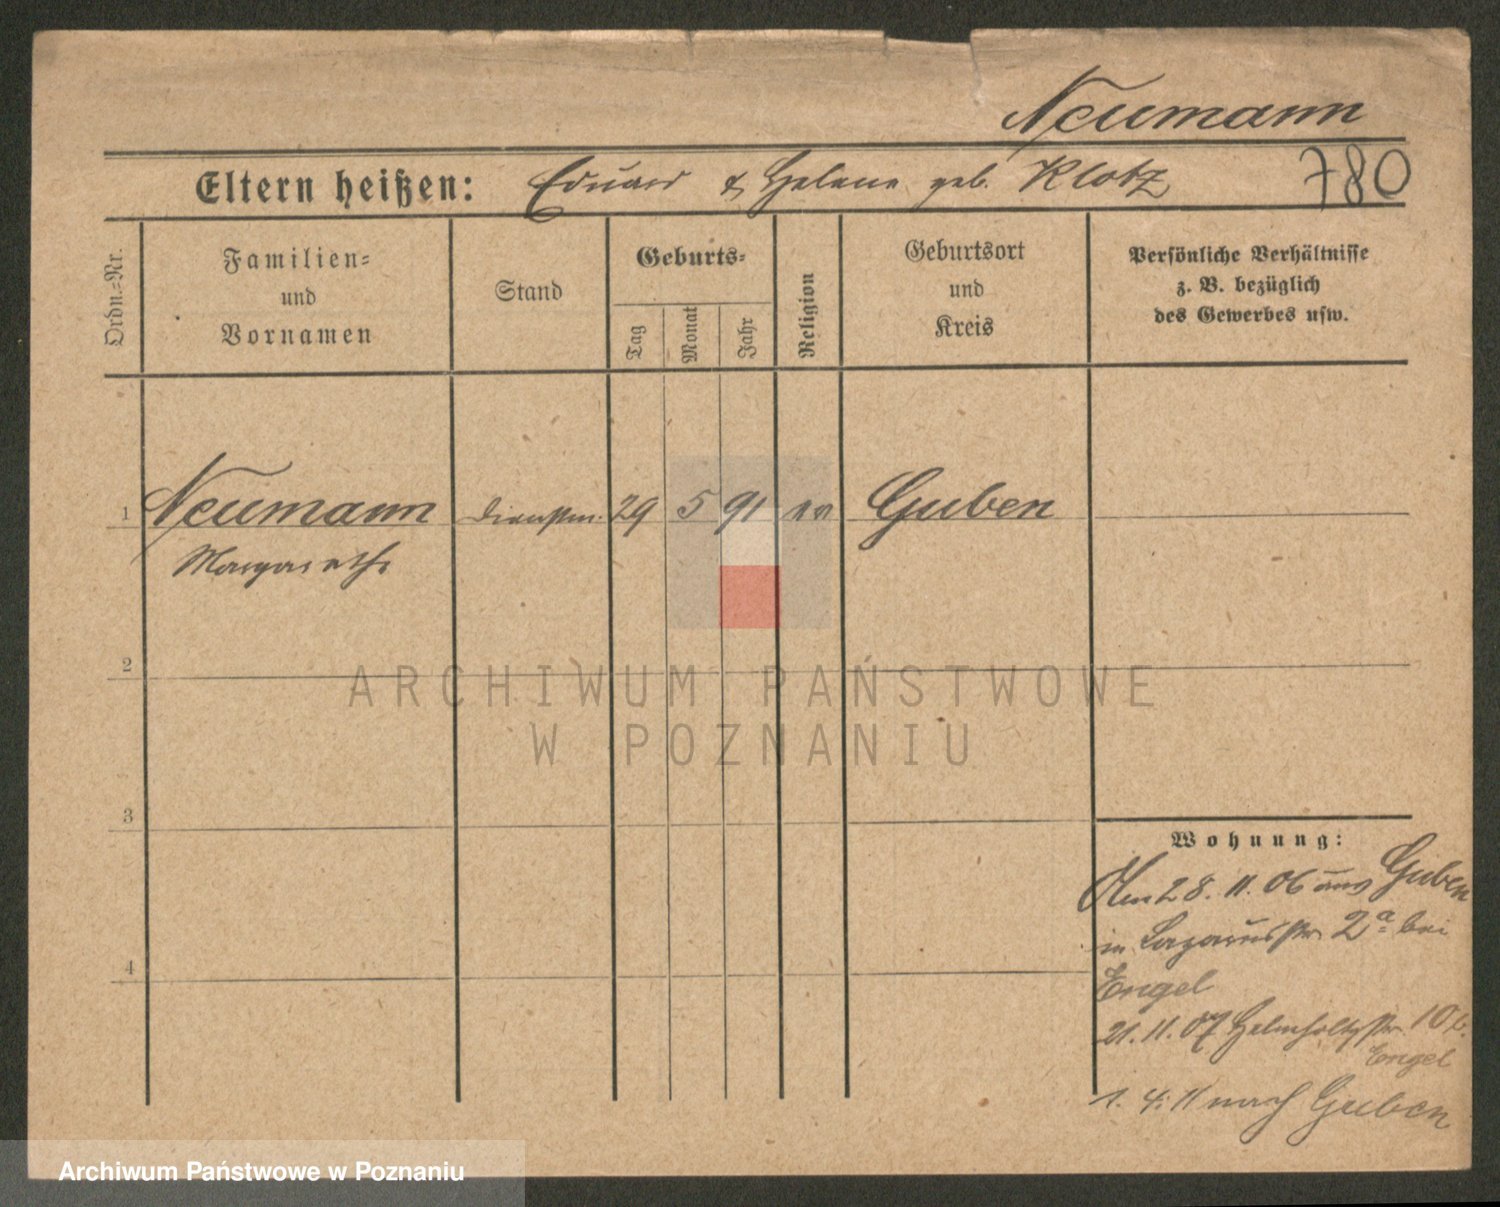 Neumann
Eltern heißen: Eduard & Helene geb. Klotz 780
Ordn.=Nr.
Familien=
und
Vornamen
Stand
Geburts=
Tag
Monat
Jahr
Religion
Geburtsort
und
Kreis
Persönliche Verhältnisse
z. B. bezüglich
des Gewerbes usw.
1 Neumann Dienstm. 29 5 91 ev Guben
Margarethe
2
3
4
ARCHIWUM PAŃSTWOWE
W POZNANIU
Wohnung:
Am 28. 11. 06 aus Guben
in Lazarusstr 2a bei
Engel
21. 11. 07 Helmholtzstr. 10 b.
Engel
1. 4. 11 nach Guben
Archiwum Państwowe w Poznaniu